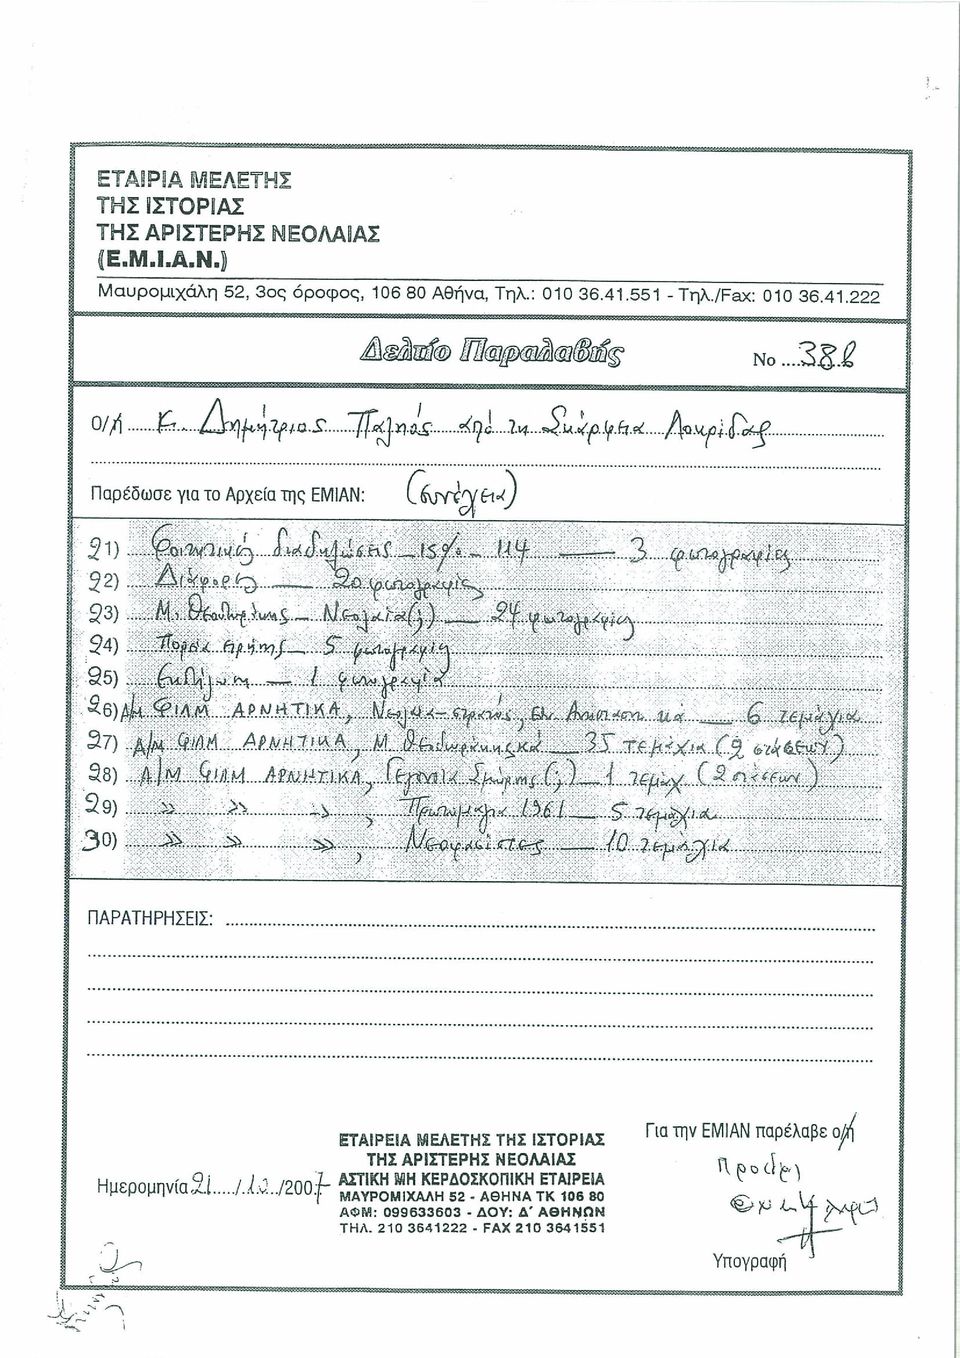 ΕΤΑΙΡΙΑ ΜΕΛΕΤΗΣ
ΤΗΣ ΙΣΤΟΡΙΑΣ
ΤΗΣ ΑΡΙΣΤΕΡΗΣ ΝΕΟΛΑΙΑΣ
(Ε.Μ.Ι.Α.Ν.)
Μαυρομιχάλη 52, 3ος όροφος, 106 80 Αθήνα, Τηλ.: 010 36.41.551 - Τηλ./Fax: 010 36.41.222
Δελτίο Παραλαβής Νο 38β
Ο/ή κ. Δημήτριος Παληός από τη Σκάρφεια Λοκρίδας
Παρέδωσε για το Αρχεία της ΕΜΙΑΝ: (συνέχεια)
21) Φοιτητικές διαδηλώσεις 15% - 114 — 3 φωτογραφίες
22) Διάφορες — 20 φωτογραφίες
23) Μ. Θεοδωράκης - Νεολαία(;) — 24 φωτογραφίες
24) Πορεία ειρήνης — 5 φωτογραφίες
25) Εκδήλωση — 1 φωτογραφία
26) Α/Μ ΦΙΛΜ ΑΡΝΗΤΙΚΑ, Εθν. Αντίσταση κά — 6 τεμάχια
27) Α/Μ ΦΙΛΜ ΑΡΝΗΤΙΚΑ, Μ. Θεοδωράκης κά — 35 τεμάχια (2 στάσεων)
28) Α/Μ ΦΙΛΜ ΑΡΝΗΤΙΚΑ, Σμύρνης (;) — 1 τεμάχ. (2 στάσεων)
29) » » », Πρωτομαγιά 1961 — 5 τεμάχια
30) » » », Νεοφασίστες — 10 τεμάχια
ΠΑΡΑΤΗΡΗΣΕΙΣ:
ΕΤΑΙΡΕΙΑ ΜΕΛΕΤΗΣ ΤΗΣ ΙΣΤΟΡΙΑΣ
ΤΗΣ ΑΡΙΣΤΕΡΗΣ ΝΕΟΛΑΙΑΣ
ΑΣΤΙΚΗ ΜΗ ΚΕΡΔΟΣΚΟΠΙΚΗ ΕΤΑΙΡΕΙΑ
ΜΑΥΡΟΜΙΧΑΛΗ 52 - ΑΘΗΝΑ ΤΚ 106 80
ΑΦΜ: 099633603 - ΔΟΥ: Δ' ΑΘΗΝΩΝ
ΤΗΛ. 210 3641222 - FAX 210 3641551
Ημερομηνία 21/12/2007
Για την ΕΜΙΑΝ παρέλαβε ο/ή
Υπογραφή